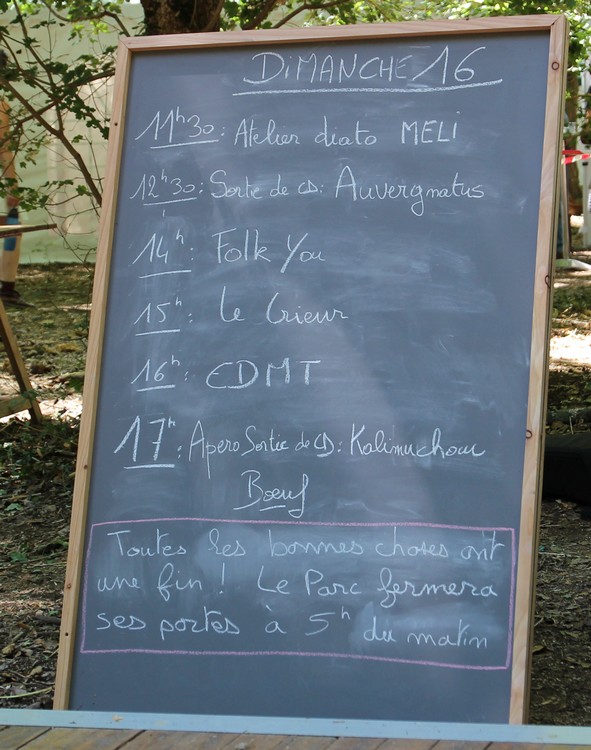 DiMANCHE 16
11h30: Atelier diato MELi
12h30: Sortie de CD: Auvergnatus
14h: Folk You
15h: Le Crieur
16h: CDMT
17h: Apero Sortie de CD: Kalimuchou
Bœuf
Toutes les bonnes choses ont
une fin ! Le Parc fermera
ses portes à 5h du matin